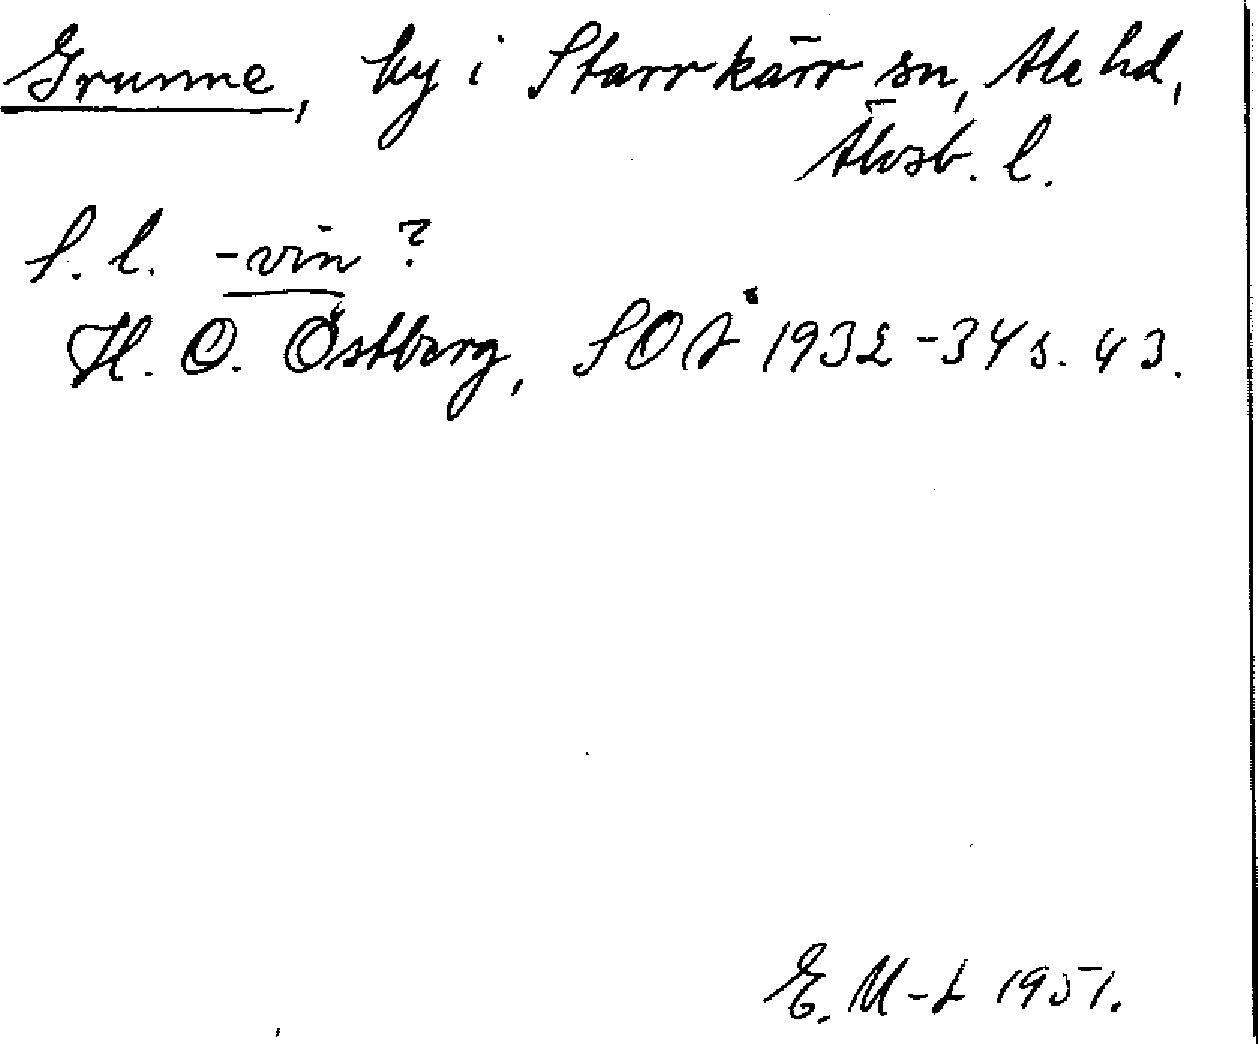 Grunne, by i Starrkärr sn, Ale hd,
Älvsb. l.
S. l. -vin?
H. O. Östberg, SOÅ 1932-34 s. 43.
E. M-L 1951.